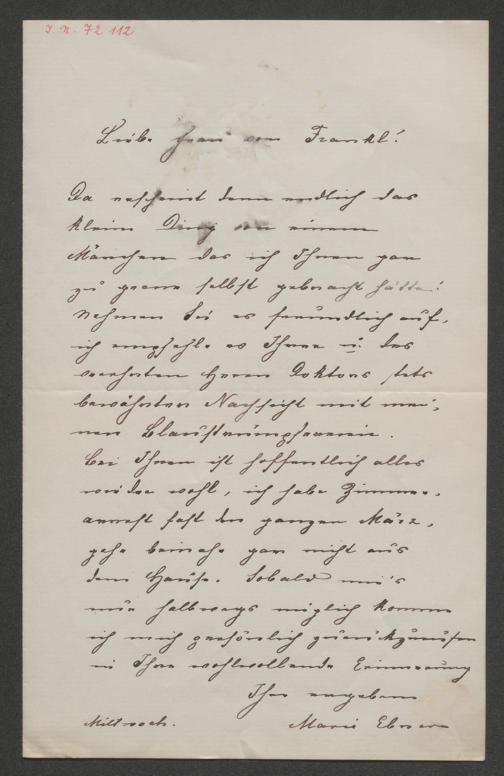 I. N. 72 112
Liebe Frau von Frankl!
Da erscheint denn endlich das
kleine Ding von einem
Märchen das ich Ihnen gar
zu gerne selbst gebracht hätte!
Nehmen Sie es freundlich auf,
ich empfehle es Ihrer u: des
verehrten Herrn Doktors stets
bewährten Nachsicht mit mei-
nen Blaustrümpfereien.
Bei Ihnen ist hoffentlich alles
wieder wohl, ich habe Zimmer-
arrest fast den ganzen März,
gehe beinahe gar nicht aus
dem Hause. Sobald mir's
nur halbwegs möglich komme
ich mich persönlich zurückzurufen
in Ihre wohlwollende Erinnerung
Ihre ergebene
Mittwoch. Marie Ebner